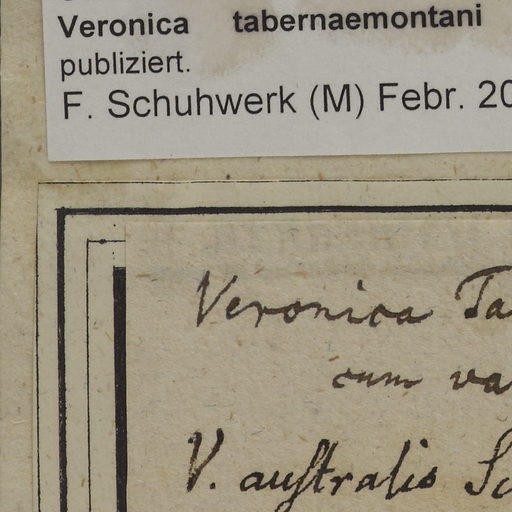 Veronica tabernaemontani
publiziert.
F. Schuhwerk (M) Febr. 20
Veronica Ta
cum va
V. auſtralis Sc